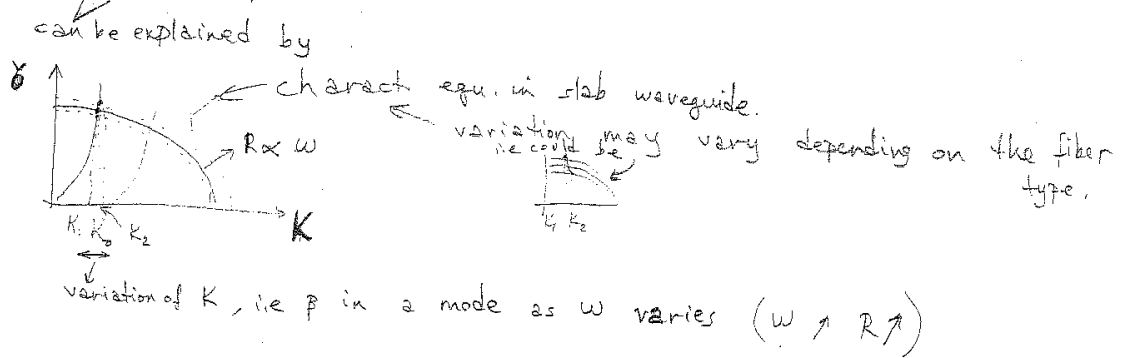 can be explained by
γ
charact equ. in slab waveguide.
variation may vary depending on the fiber type.
i.e could be
R ∝ ω
K
K₁ K₀ K₂
K₁ K₂
variation of K, i.e β in a mode as ω varies (ω ↗ R ↗)